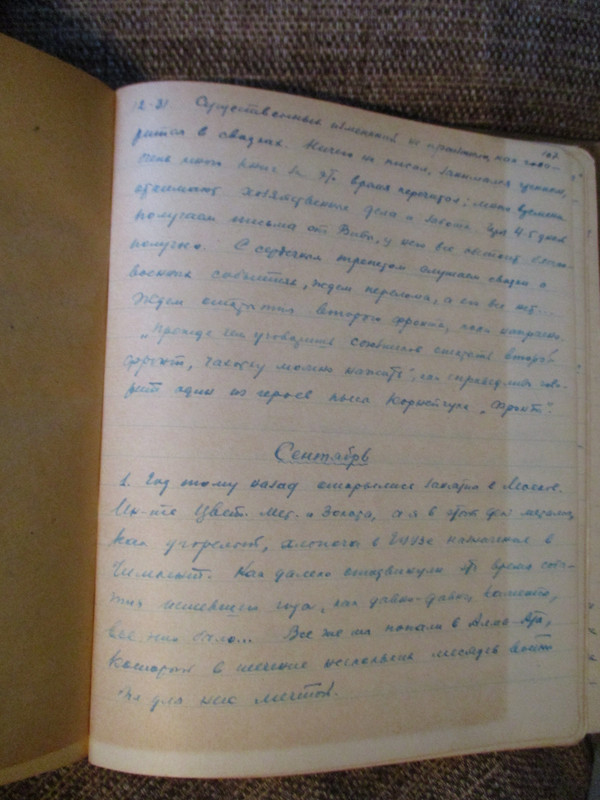 12-31 Существенных изменений не произошло, как гово-
107.
рится в сводках. Ничего не писал, занимался чтением,
очень много книг за это время перечитал; много времени
отнимают хозяйственные дела и забота. Через 4-5 дней
получаем письма от Вивы, у него все обстоит благо-
получно. С сердечным трепетом слушаем сводки о
военных событиях, ждем перелома, а его все нет...
Ждем открытия второго фронта, пока напрасно.
"Прежде чем уговорить союзников открыть второй
фронт, чахотку можно нажить", как справедливо гово-
рит один из героев пьесы Корнейчука "Фронт".
Сентябрь
1. Год тому назад открылись занятия в Московс.
Ин-те Цвет. Мет. и Золота, а я в этот день метался,
как угорелый, хлопоча в ГУУЗе назначение в
Чимкент. Как далеко отодвинули это время собы-
тия истекшего года, как давно-давно, кажется,
все это было... Все же мы попали в Алма-Ата,
который в течение нескольких месяцев
для нас мечтой.